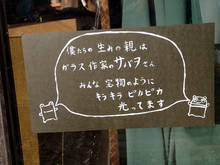 僕たちの生みの親は
ガラス作家のサバヲさん
みんな宝物のように
キラキラ ピカピカ
光ってます